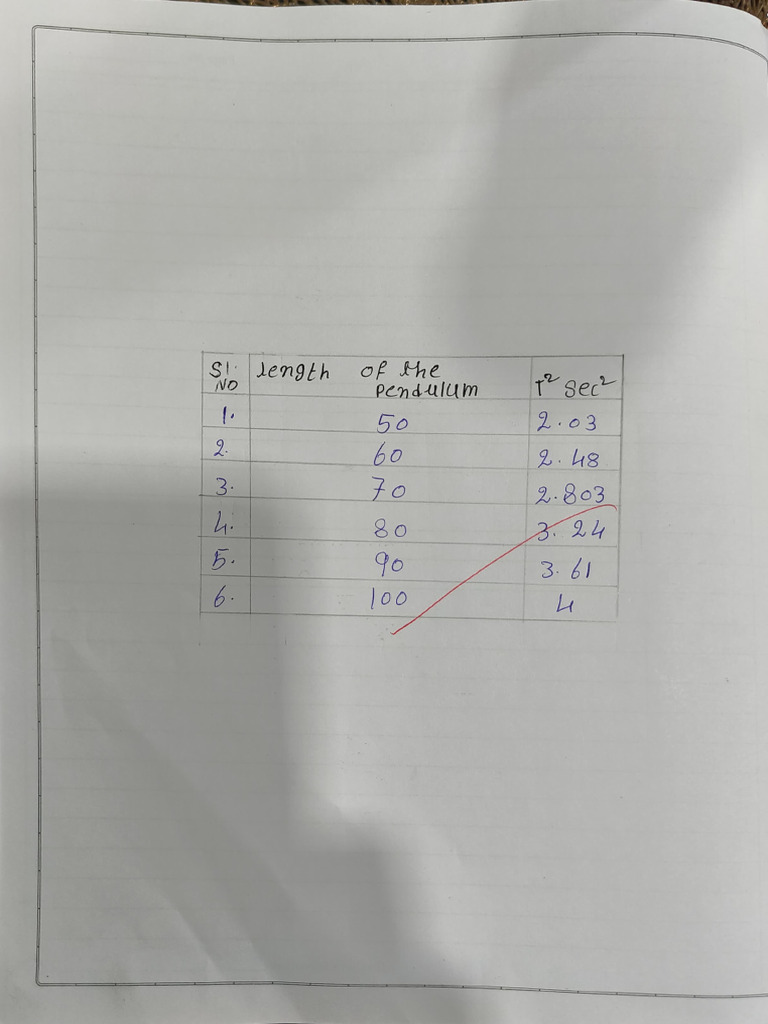 Sl. NO length of the pendulum T² Sec²
1. 50 2.03
2. 60 2.48
3. 70 2.803
4. 80 3.24
5. 90 3.61
6. 100 4